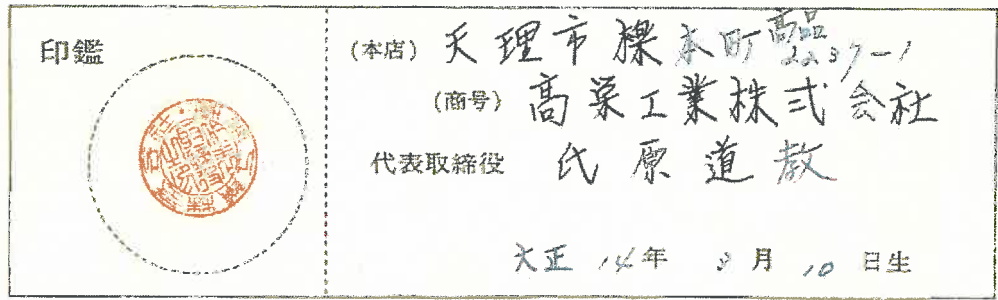 印鑑
(本店) 天理市櫟本町高品2237-1
(商号) 高巣工業株式会社
代表取締役 氏原道教
大正 14年 3月 10日生